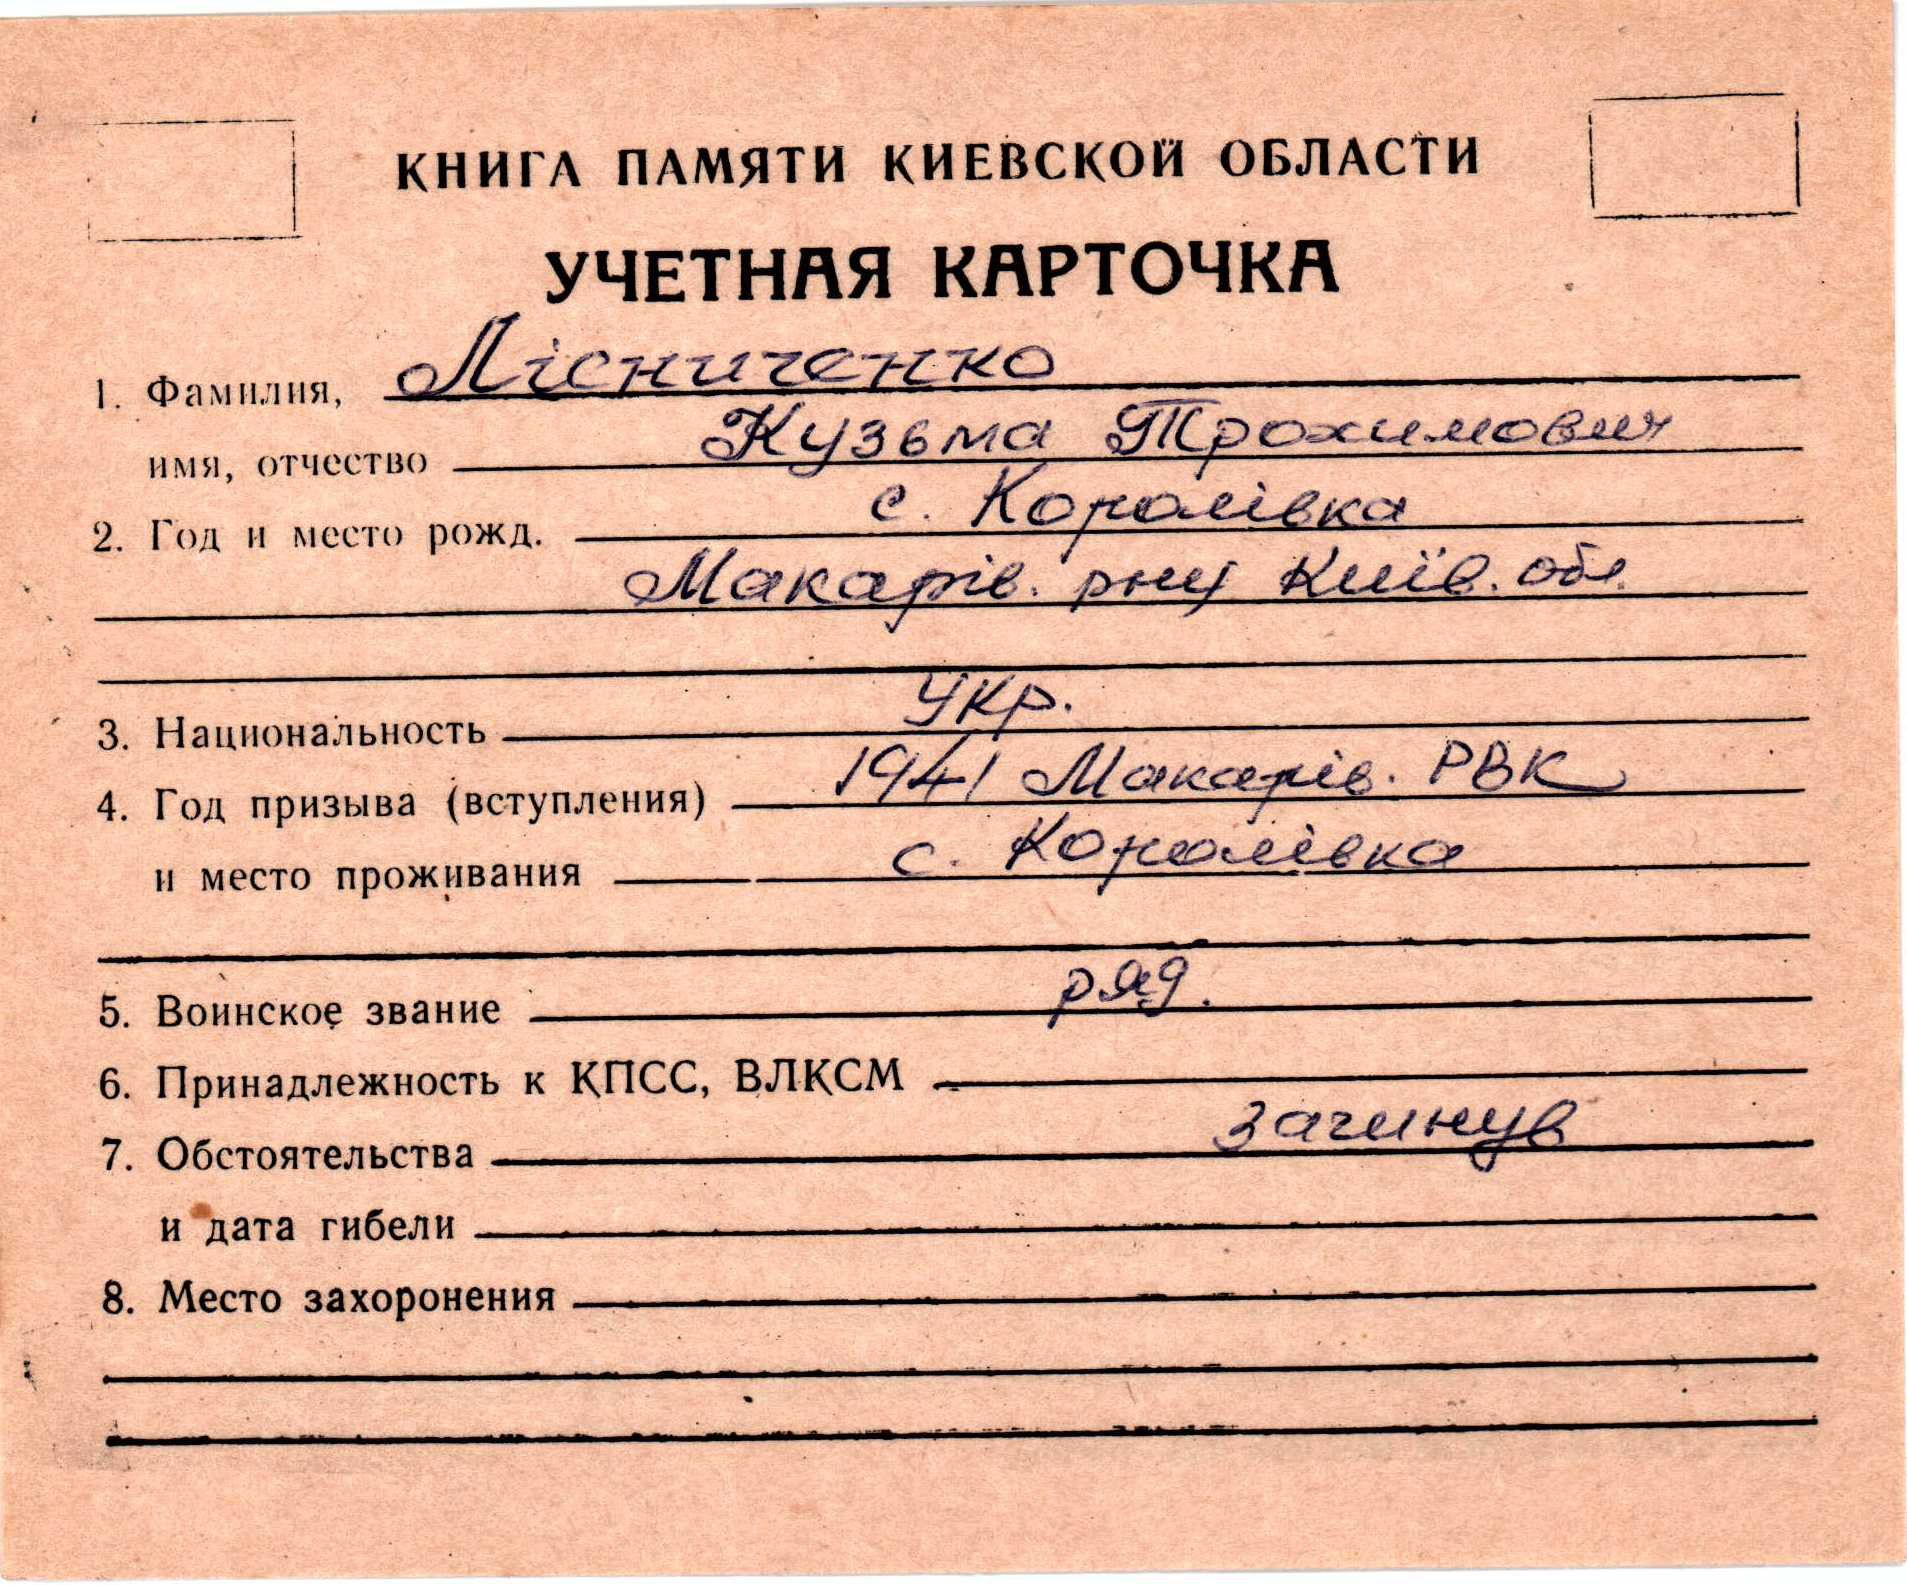 КНИГА ПАМЯТИ КИЕВСКОЙ ОБЛАСТИ
УЧЕТНАЯ КАРТОЧКА
1. Фамилия, Лісниченко
имя, отчество Кузьма Трохимович
2. Год и место рожд. с. Королівка
Макарів. рну Київ. обл.
3. Национальность Укр.
4. Год призыва (вступления) 1941 Макарів. РВК
и место проживания с. Королівка
5. Воинское звание ряд.
6. Принадлежность к КПСС, ВЛКСМ
7. Обстоятельства загинув
и дата гибели
8. Место захоронения